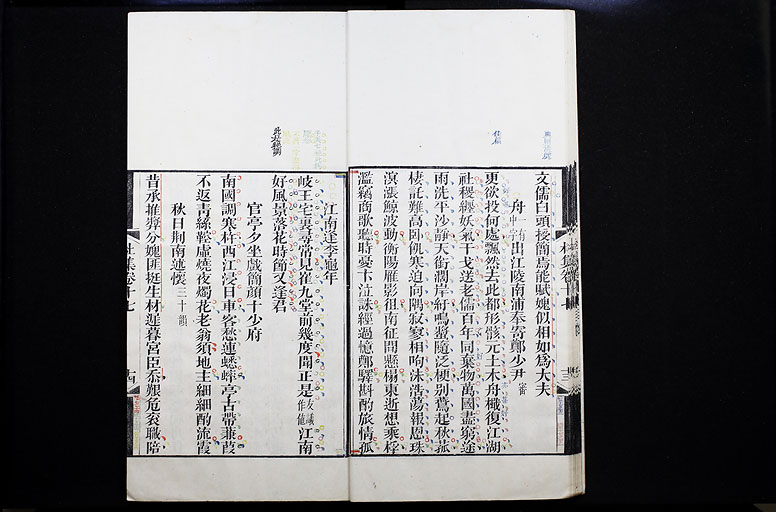 文儒白頭授簡焉能賦媿似相如爲大夫
舟中一有字出江陵南浦奉寄鄭少尹審
更欲投何處飄然去此都形骸元土木舟檝復江湖
社稷纏妖氣干戈送老儒百年同棄物萬國盡窮途
雨洗平沙靜天銜闊岸紆鳴螿隨泛梗別鷰起秋菰
棲託難高臥飢寒迫向隅寂寥相呴沫浩蕩報恩珠
溟漲鯨波動衡陽雁影徂南征問懸榻東逝想乘桴
濫竊商歌聽時憂卞泣誅經過憶鄭驛斟酌旅情孤
江南逢李龜年
岐王宅裏尋常見崔九堂前幾度聞正是江南
好風景落花時節又逢君
官亭夕坐戲簡顏十少府
南國調寒杵西江浸日車客愁連蟋蟀亭古帶蒹葭
不返青絲鞚虛燒夜燭花老翁須地主細細酌流霞
秋日荊南述懷三十韻
昔承推奬分媿匪挺生材遲暮宮臣忝艱危衮職陪
杜集卷十七
十四